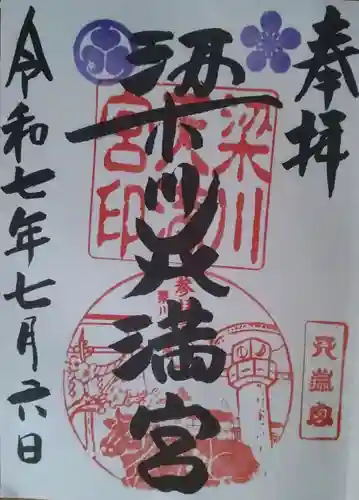 奉拝
梁川天満宮
令和七年七月六日
梁川
天満
宮印